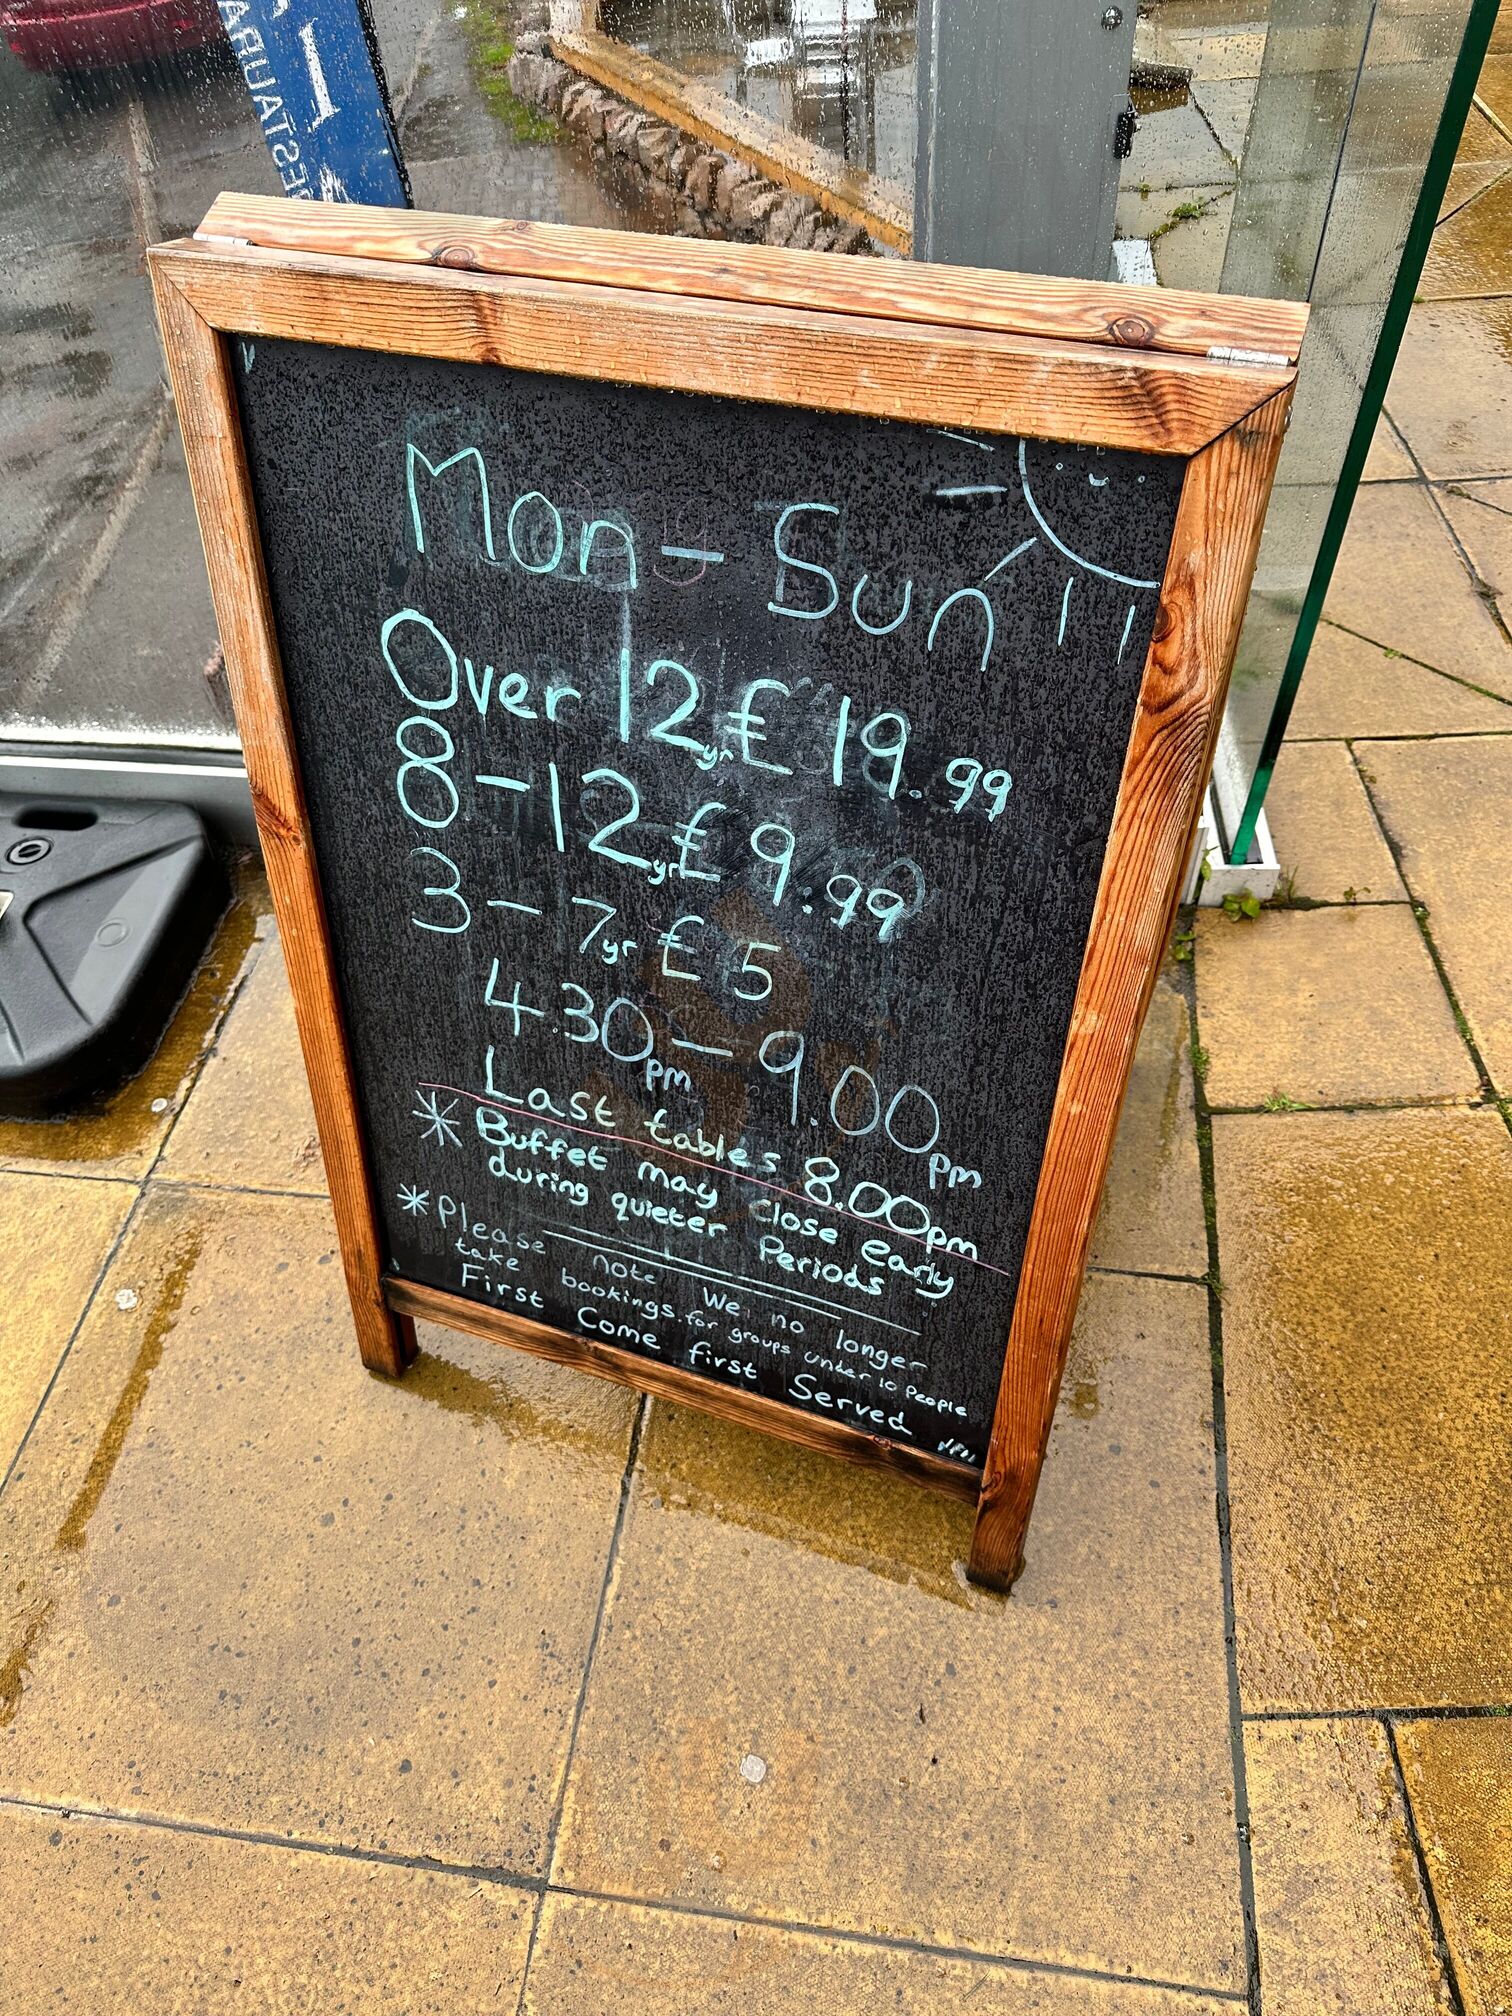 Mon - Sun
Over 12yr £ 19.99
8 - 12yr £ 9.99
3 - 7yr £ 5
4.30pm - 9.00pm
Last tables 8.00pm
* Buffet may close early
during quieter Periods
* Please note We no longer
take bookings for groups under 10 People
First Come first Served